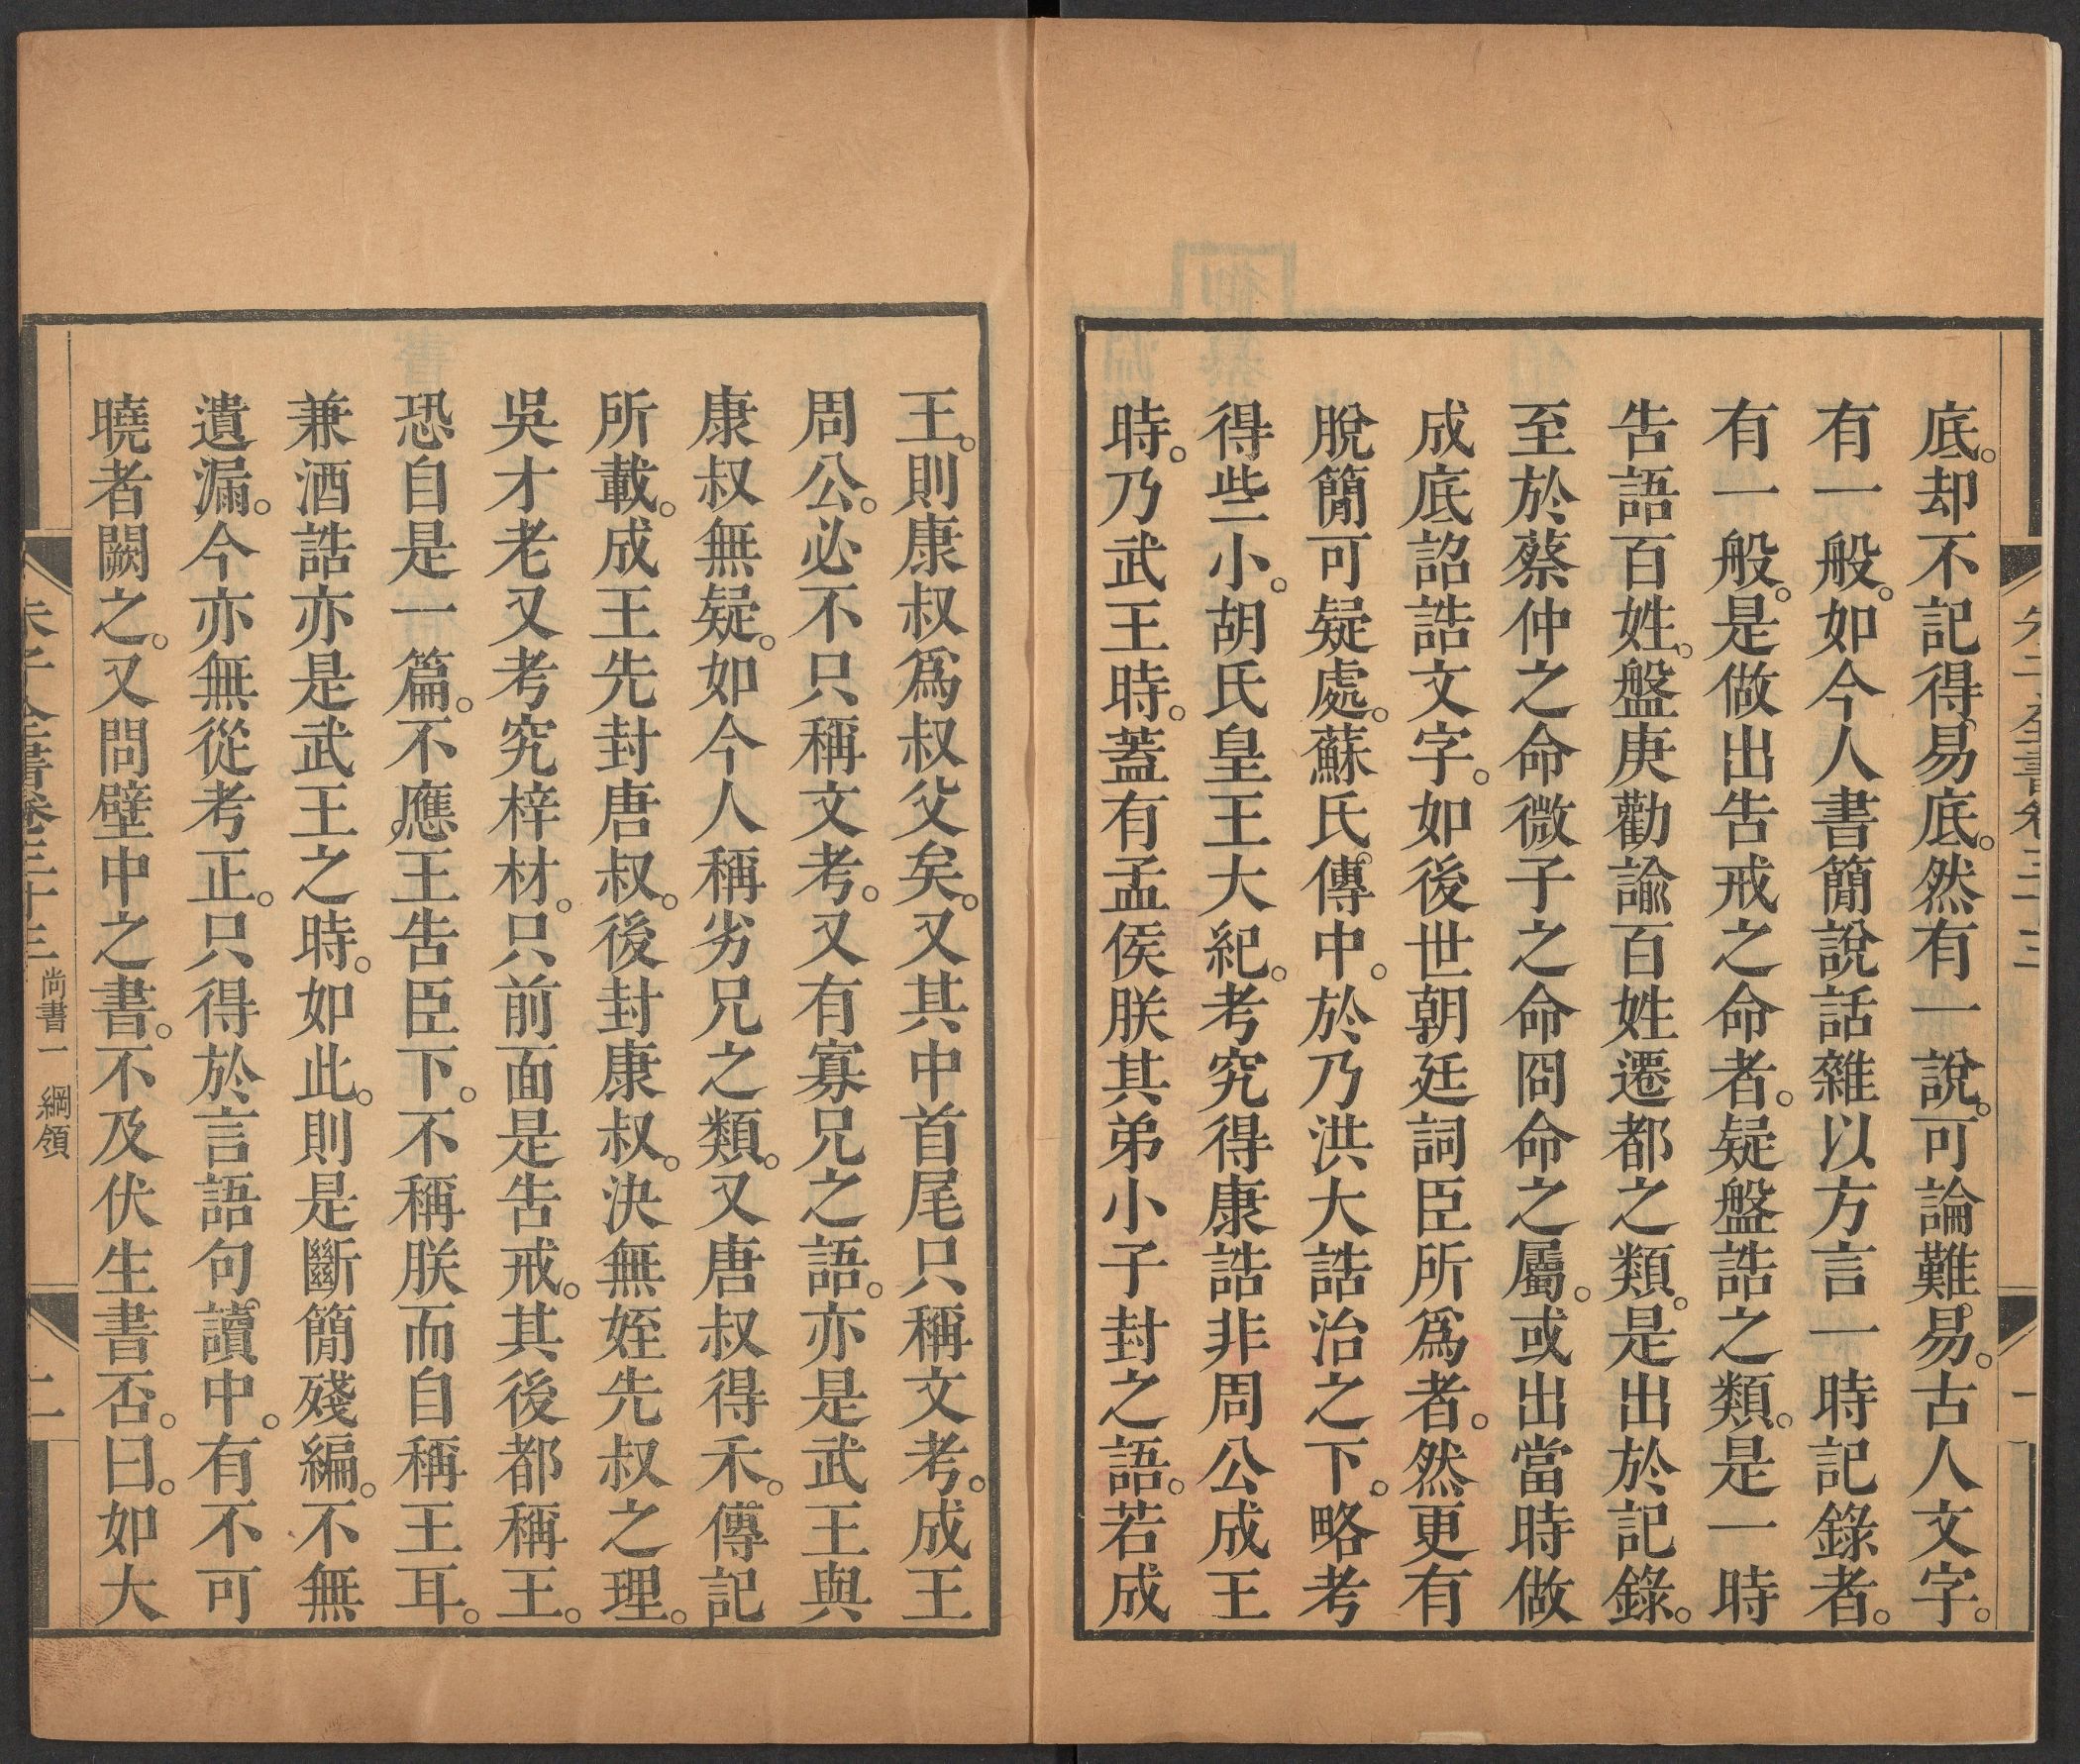 底。却不記得易底。然有一說。可論難易。古人文字。
有一般。如今人書簡說話雜以方言一時記錄者。
有一般。是做出告戒之命者。疑盤誥之類。是一時
告語百姓。盤庚勸諭百姓遷都之類。是出於記錄。
至於蔡仲之命微子之命冏命之屬。或出當時做
成底詔誥文字。如後世朝廷詞臣所爲者。然更有
脫簡可疑處。蘇氏傳中。於乃洪大誥治之下。略考
得些小。胡氏皇王大紀。考究得康誥非周公成王
時。乃武王時。蓋有孟侯朕其弟小子封之語。若成
王。則康叔爲叔父矣。又其中首尾只稱文考。成王
周公。必不只稱文考。又有寡兄之語。亦是武王與
康叔無疑。如今人稱劣兄之類。又唐叔得禾。傳記
所載。成王先封唐叔。後封康叔。決無姪先叔之理。
吳才老又考究梓材。只前面是告戒。其後都稱王。
恐自是一篇。不應王告臣下。不稱朕而自稱王耳。
兼酒誥亦是武王之時。如此。則是斷簡殘編。不無
遺漏。今亦無從考正。只得於言語句讀中。有不可
曉者闕之。又問壁中之書。不及伏生書否。曰。如大
朱子全書卷三十三 尚書一 綱領
二